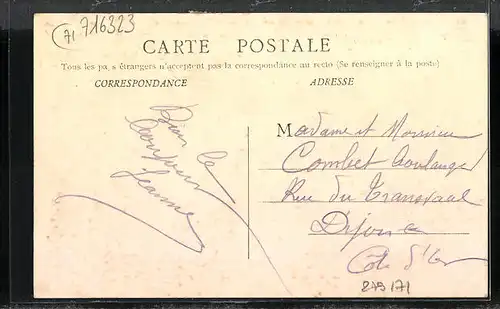 71 716323
CARTE POSTALE
Tous les pays étrangers n'acceptent pas la correspondance au recto (Se renseigner à la poste)
CORRESPONDANCE
ADRESSE
Bien le
bonjour
Jeanne
Madame et Monsieur
Combet Boulanger
Rue du Transvaal
Dijon
Côte d'Or
249171